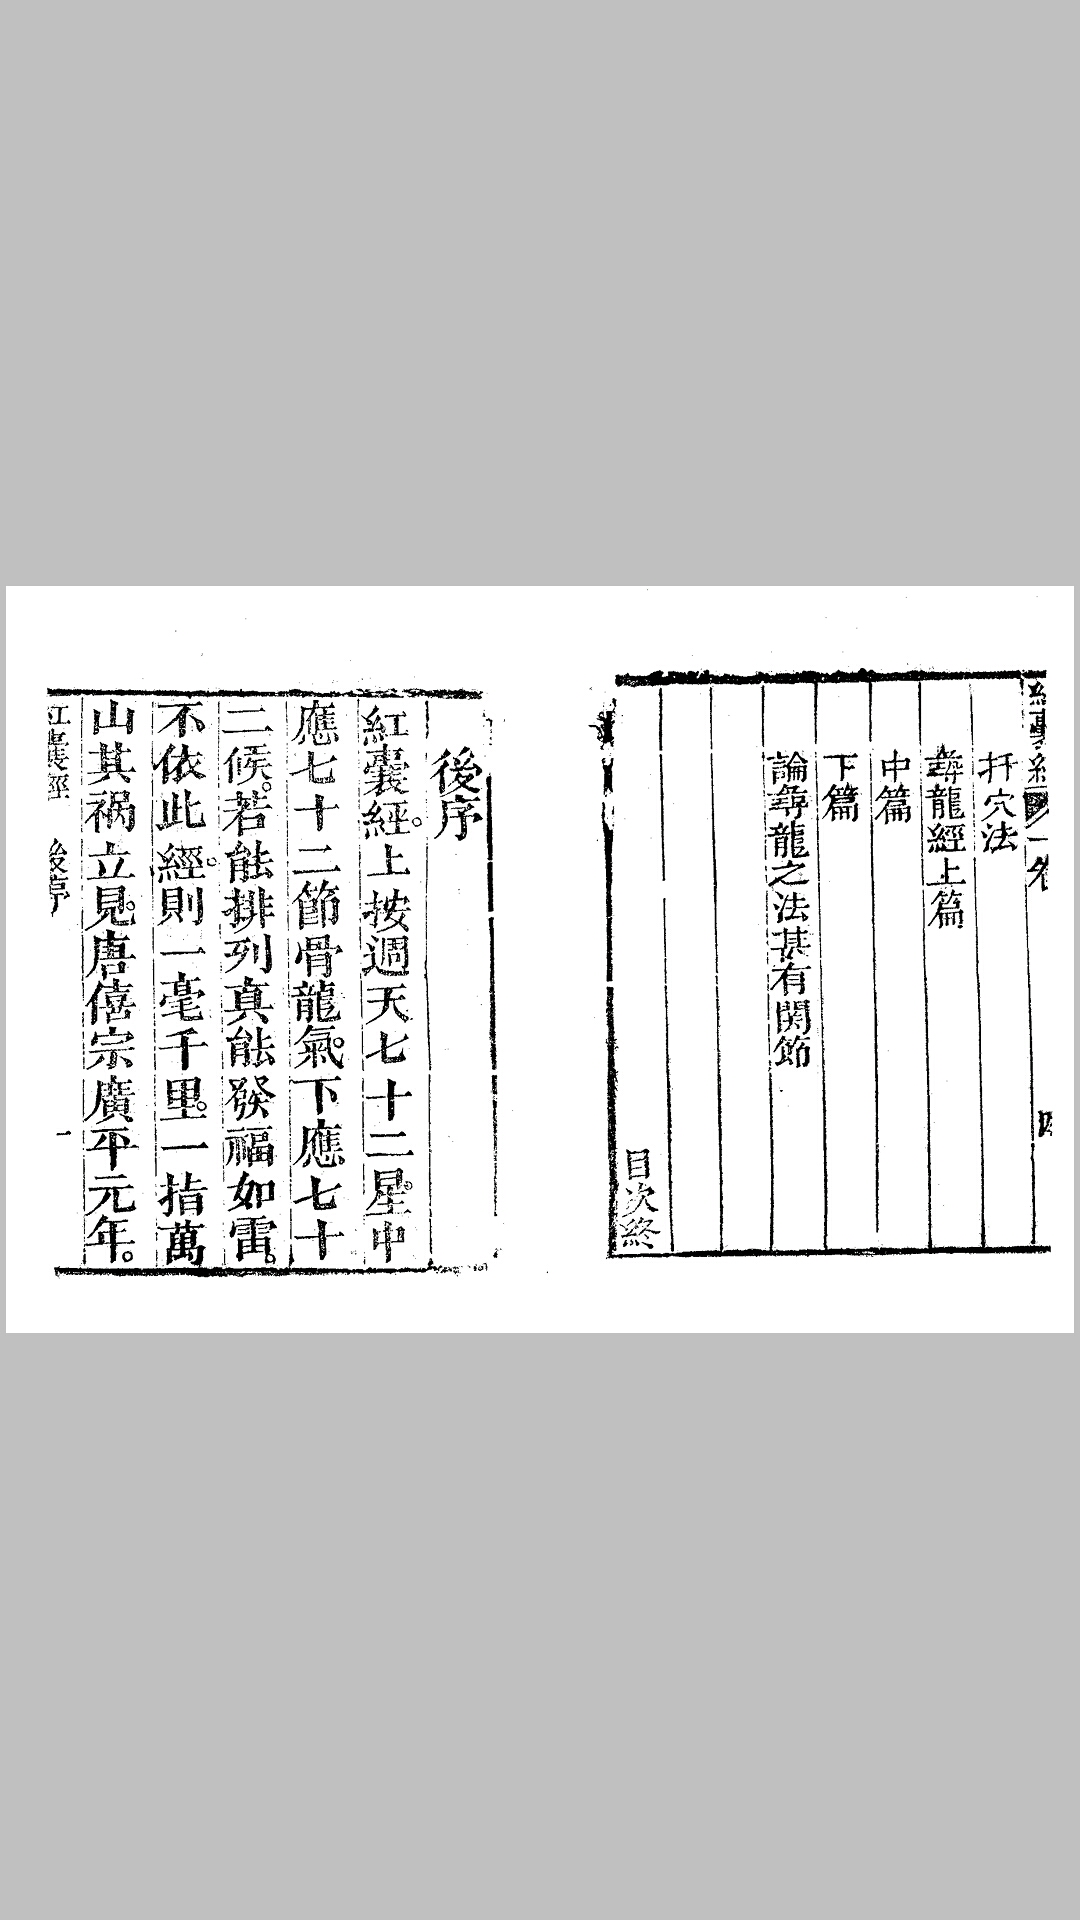 紅囊經 一卷 四
扦穴法
尋龍經上篇
中篇
下篇
論尋龍之法甚有関節
目次終
後序
紅囊經。上按週天七十二星。中
應七十二節骨龍氣。下應七十
二候。若能排列真能發福如雷。
不依此經。則一毫千里。一指萬
山其祸立見。唐僖宗廣平元年。
紅囊經 後序 一